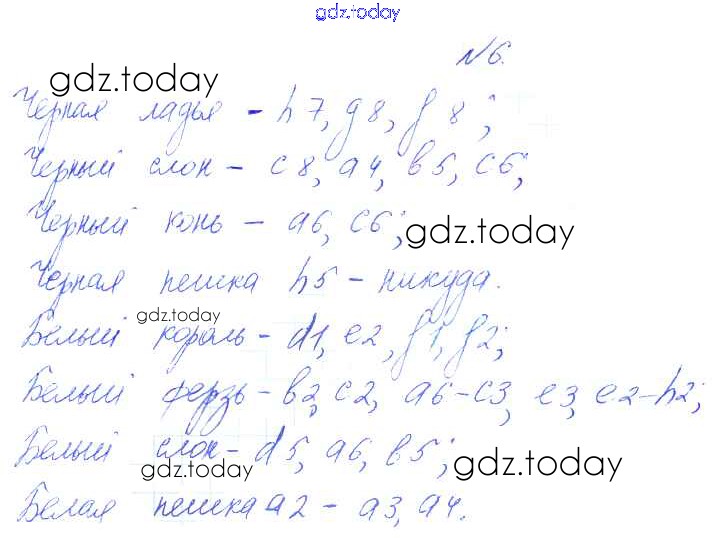 gdz.today
№6.
gdz.today
Черная ладья - h7, g8, f8;
Черный слон - c8, a4, b5, c6;
Черный конь - a6, c6;
gdz.today
Черная пешка h5 - никуда.
gdz.today
Белый король - d1, e2, f1, f2;
Белый ферзь - b2, c2, a6-c3, e3, e2-h2;
Белый слон - d5, a6, b5;
gdz.today gdz.today
Белая пешка a2 - a3, a4.